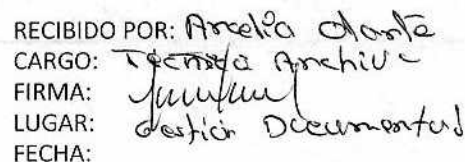 RECIBIDO POR: Arcelia
CARGO: Técnica Archivo
FIRMA:
LUGAR: Gestión Documental
FECHA: